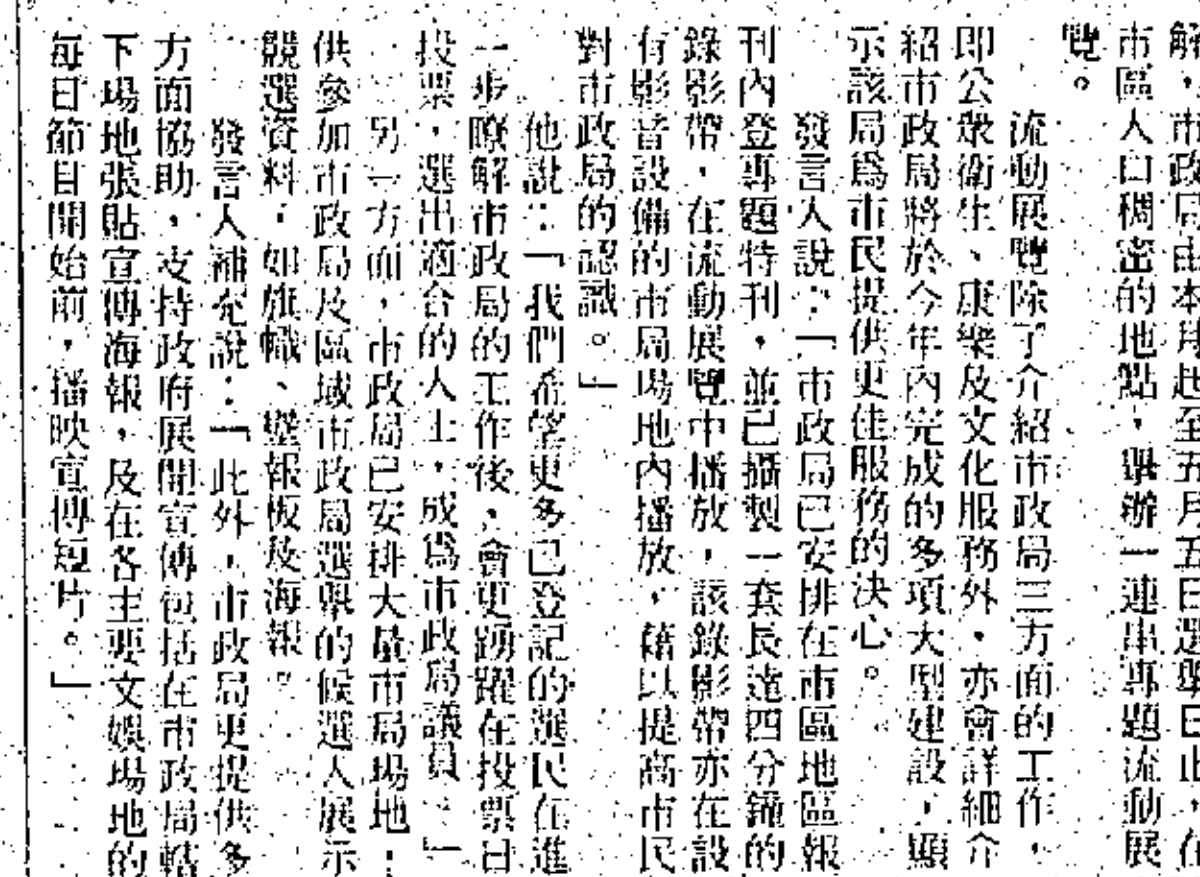 解，市政局由本月起至五月五日選舉日止，在
市區人口稠密的地點，舉辦一連串專題流動展
覽。
流動展覽除了介紹市政局三方面的工作，
即公眾衞生、康樂及文化服務外，亦會詳細介
紹市政局將於今年內完成的多項大型建設，顯
示該局爲市民提供更佳服務的决心。
發言人說：「市政局已安排在市區地區報
刊內登專題特刊，並已攝製一套長達四分鐘的
錄影帶，在流動展覽中播放，該錄影帶亦在設
有影音設備的市局場地內播放，藉以提高市民
對市政局的認識。」
他說：「我們希望更多已登記的選民在進
一步瞭解市政局的工作後，會更踴躍在投票日
投票，選出適合的人士，成爲市政局議員。」
另一方面，市政局已安排大量市局場地，
供參加市政局及區域市政局選舉的候選人展示
競選資料，如旗幟、壁報板及海報。
發言人補充說：「此外，市政局更提供多
方面協助，支持政府展開宣傳包括在市政局轄
下場地張貼宣傳海報，及在各主要文娛場地的
每日節目開始前，播映宣傳短片。」